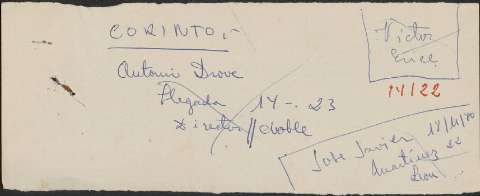 CORINTO.-
Antonio Drove
Llegada 14-. 23
Director // doble
Victor
Erice
14/22
Jose Javier 18/11/80
Martinez
Leon